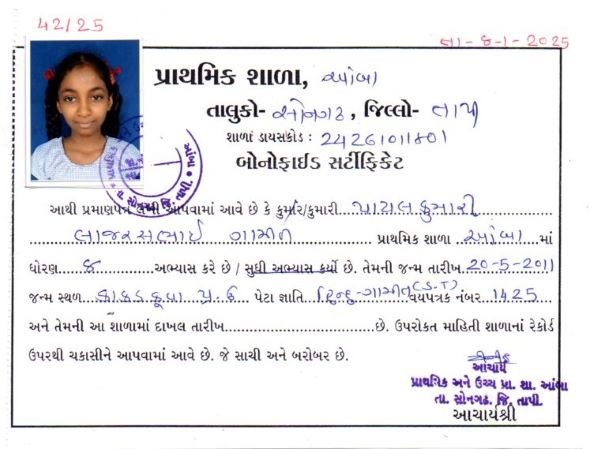 42/25
તા-૪-૧-2025
પ્રાથમિક શાળા, આંબા
તાલુકો- સોનગઢ, જિલ્લો- તાપી
શાળાં ડાયસકોડ : 24261011801
બોનોફાઈડ સર્ટીફિકેટ
આથી પ્રમાણપત્ર આપવામાં આવે છે કે કુમાર/કુમારી પાયલકુમારી
લાજરસભાઈ ગામીત પ્રાથમિક શાળા આંબા માં
ધોરણ ૪ અભ્યાસ કરે છે / સુધી અભ્યાસ કર્યો છે. તેમની જન્મ તારીખ 20-5-2011
જન્મ સ્થળ પેટા જ્ઞાતિ હિન્દુ-ગામીત(S.T) વયપત્રક નંબર 1425
અને તેમની આ શાળામાં દાખલ તારીખ છે. ઉપરોકત માહિતી શાળાનાં રેકોર્ડ
ઉપરથી ચકાસીને આપવામાં આવે છે. જે સાચી અને બરોબર છે.
આચાર્ય
પ્રાથમિક અને ઉચ્ચ પ્રા. શા. આંબા
તા. સોનગઢ, જિ. તાપી.
આચાર્યશ્રી